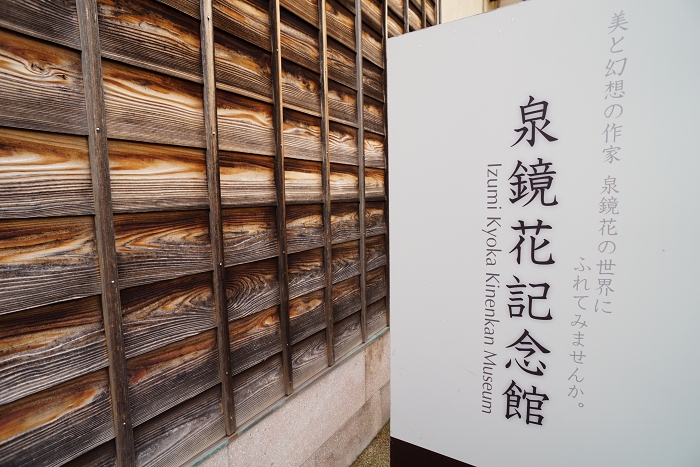 美と幻想の作家 泉鏡花の世界に
ふれてみませんか。
泉鏡花記念館
Izumi Kyoka Kinenkan Museum